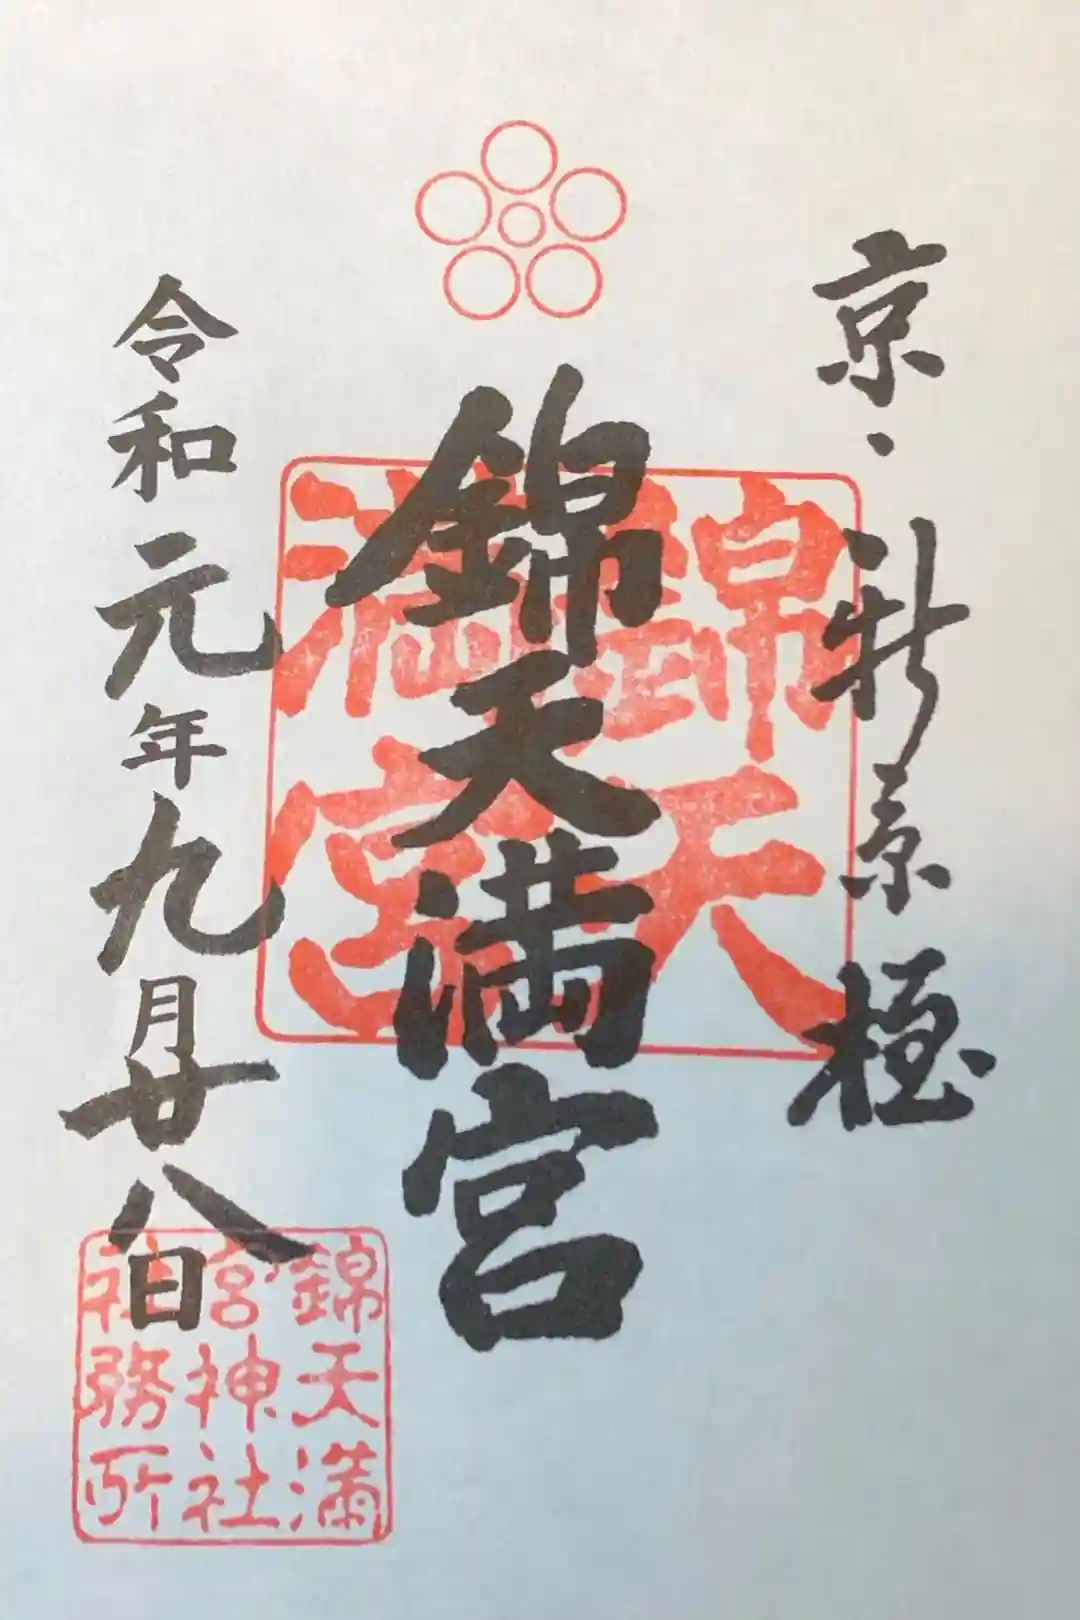 京・新京極
錦天満宮
令和元年九月廿八日
錦天
満宮
錦天満
宮神社
社務所